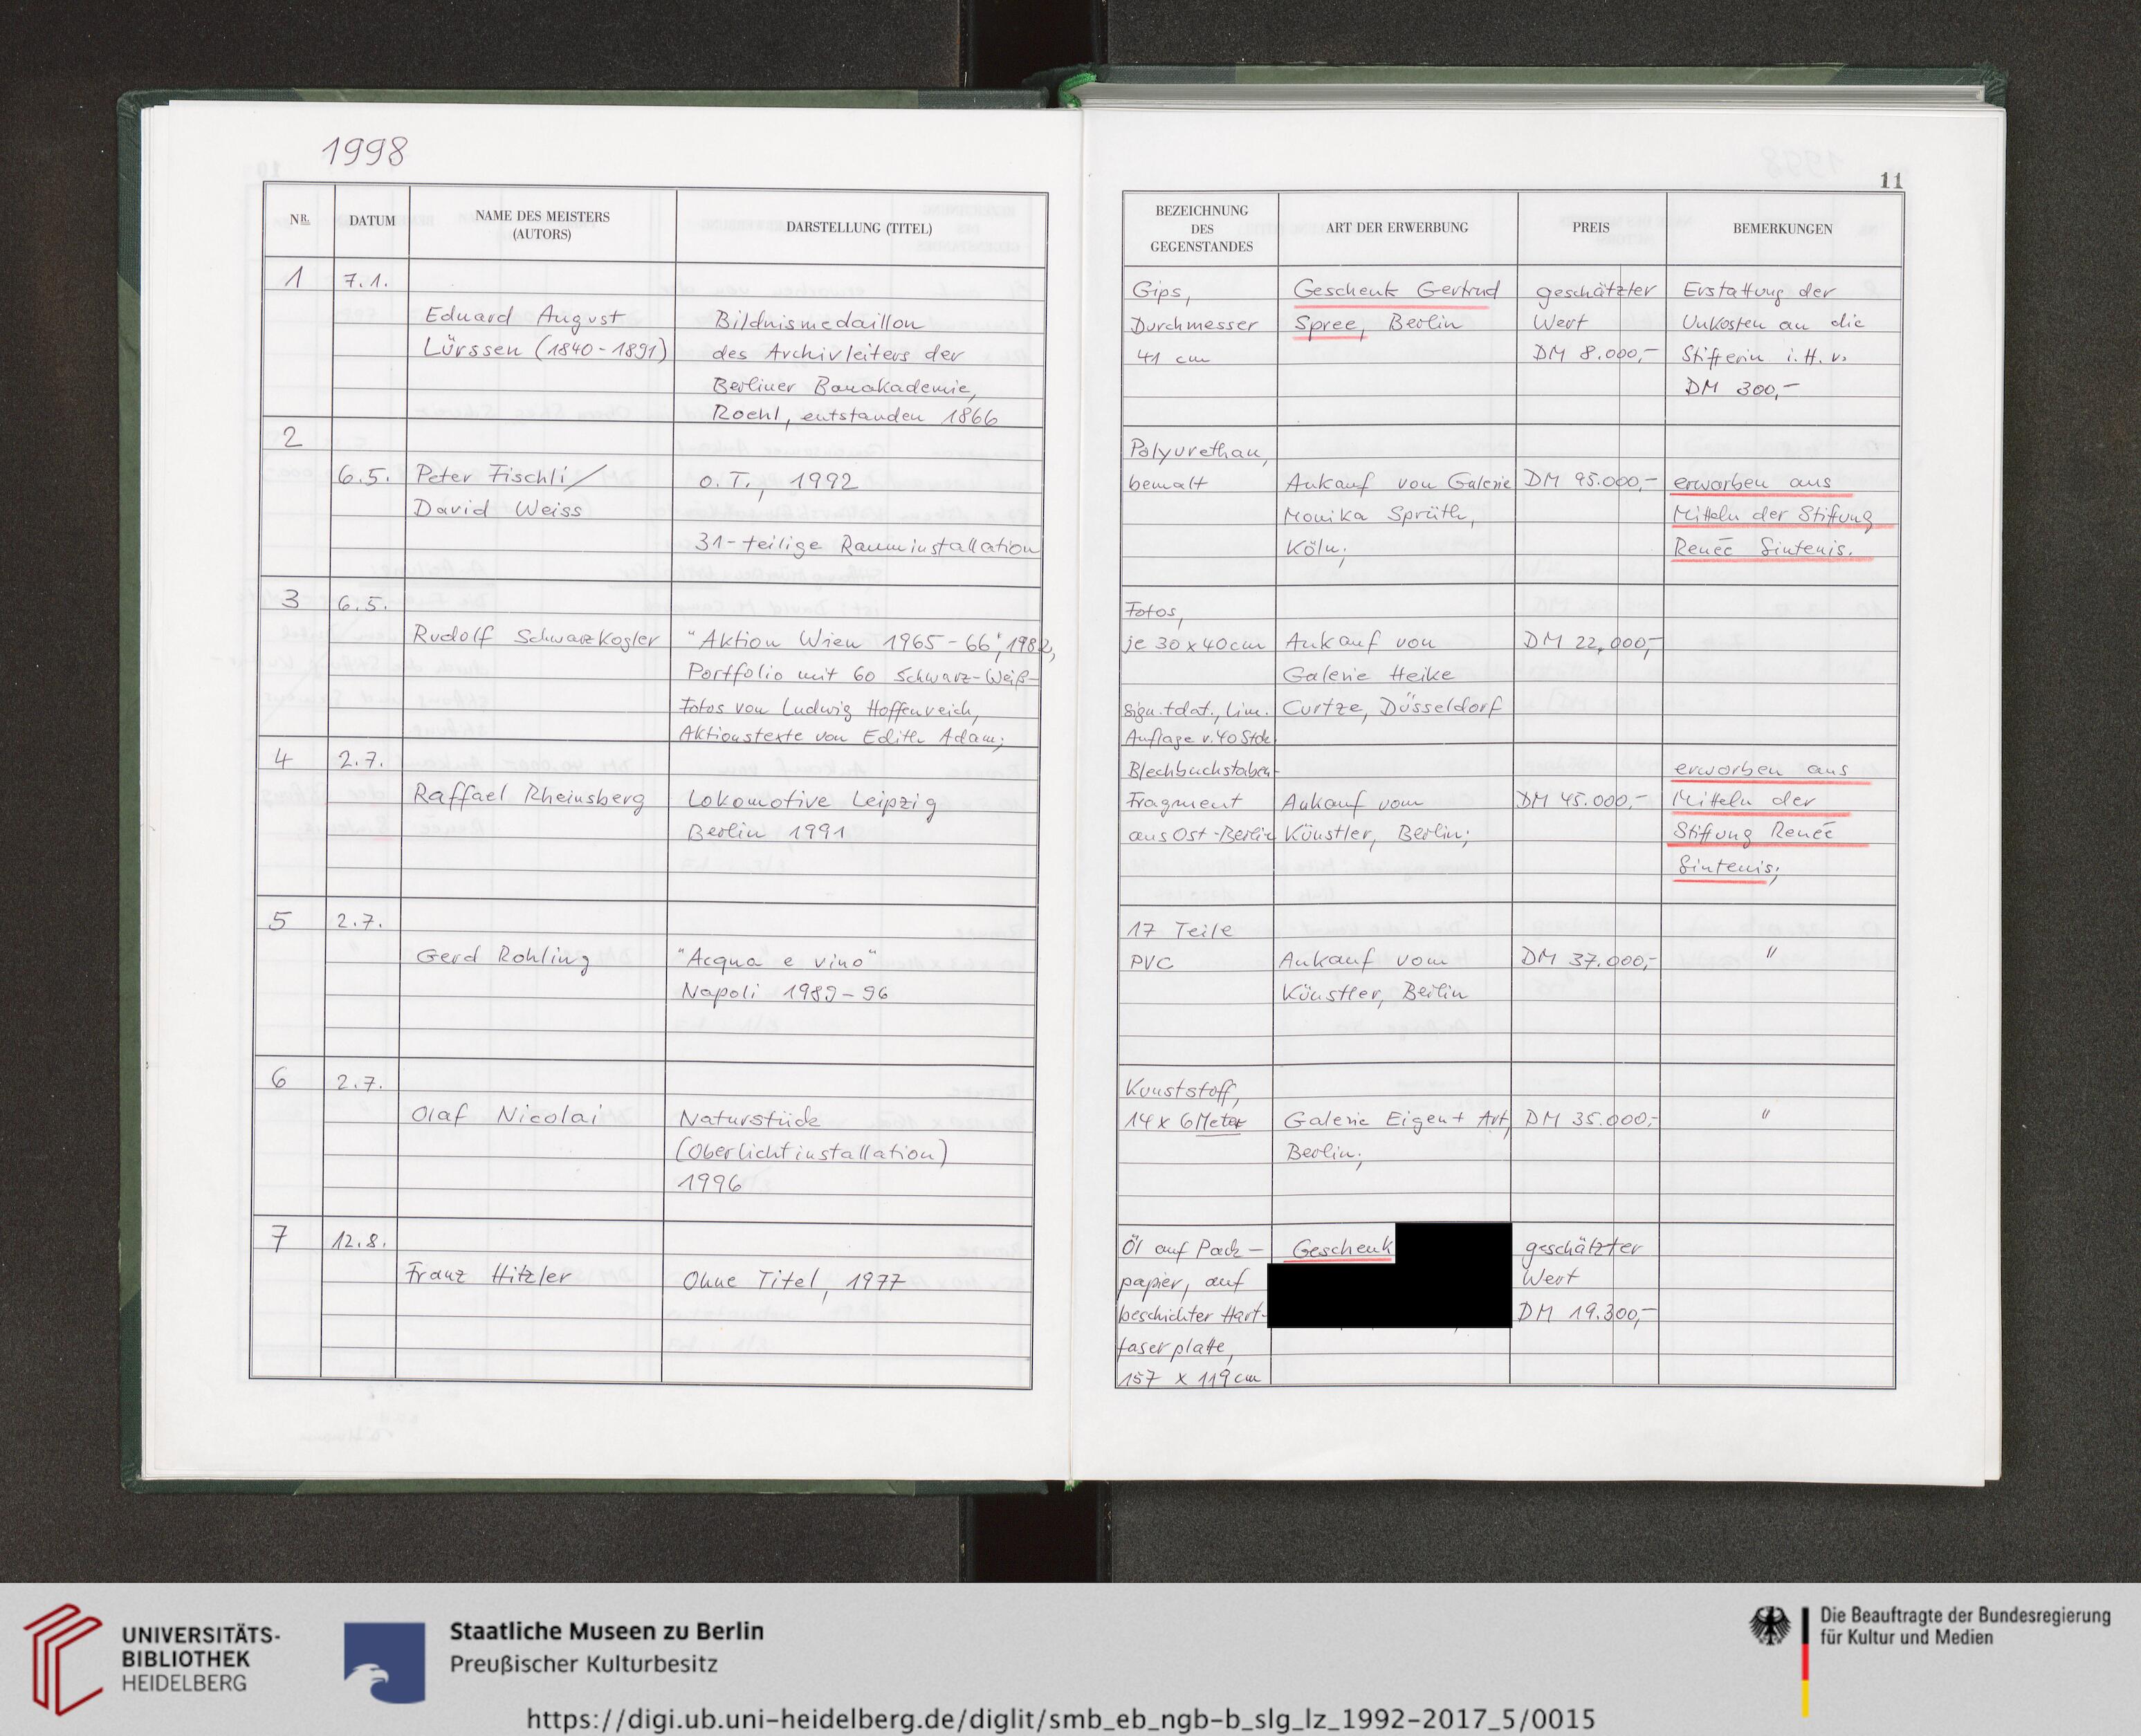 1998
11
NR.
DATUM
NAME DES MEISTERS
(AUTORS)
DARSTELLUNG (TITEL)
BEZEICHNUNG
DES
GEGENSTANDES
ART DER ERWERBUNG
PREIS
BEMERKUNGEN
1
7.1.
Eduard August
Lürssen (1840-1891)
Bildnismedaillon
des Archivleiters der
Berliner Bauakademie,
Roehl, entstanden 1866
Gips,
Durchmesser
41 cm
Geschenk Gertrud
Spree, Berlin
geschätzter
Wert
DM 8.000,-
Erstattung der
Unkosten an die
Stifterin i.H.v.
DM 300,-
2
6.5.
Peter Fischli/
David Weiss
o.T., 1992
31-teilige Rauminstallation
Polyurethan,
bemalt
Ankauf von Galerie
Monika Sprüth,
Köln;
DM 95.000,-
erworben aus
Mitteln der Stiftung
Renée Sintenis.
3
6.5.
Rudolf Schwarzkogler
"Aktion Wien 1965-66", 1982,
Portfolio mit 60 Schwarz-Weiß-
Fotos von Ludwig Hoffenreich,
Aktionstexte von Edith Adam;
Fotos,
je 30x40cm
sign.+dat., lim.
Auflage v. 40 Stck
Ankauf von
Galerie Heike
Curtze, Düsseldorf
DM 22,000,-
4
2.7.
Raffael Rheinsberg
Lokomotive Leipzig
Berlin 1991
Blechbuchstaben-
Fragment
aus Ost-Berlin
Ankauf vom
Künstler, Berlin;
DM 45.000,-
erworben aus
Mitteln der
Stiftung Renée
Sintenis;
5
2.7.
Gerd Rohling
"Acqua e vino"
Napoli 1989-96
17 Teile
PVC
Ankauf vom
Künstler, Berlin
DM 37.000,-
"
6
2.7.
Olaf Nicolai
Naturstück
(Oberlichtinstallation)
1996
Kunststoff,
14 x 6 Meter
Galerie Eigen+Art,
Berlin;
DM 35.000,-
"
7
12.8.
Franz Hitzler
Ohne Titel, 1977
Öl auf Pack-
papier, auf
beschichter Hart-
faserplatte,
157 x 119 cm
Geschenk
geschätzter
Wert
DM 19.300,-
UNIVERSITÄTS-
BIBLIOTHEK
HEIDELBERG
Staatliche Museen zu Berlin
Preußischer Kulturbesitz
Die Beauftragte der Bundesregierung
für Kultur und Medien
https://digi.ub.uni-heidelberg.de/diglit/smb_eb_ngb-b_slg_lz_1992-2017_5/0015